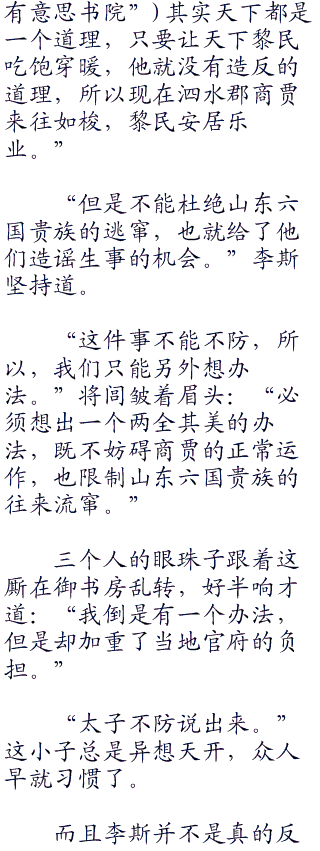 有意思书院”)其实天下都是
一个道理，只要让天下黎民
吃饱穿暖，他就没有造反的
道理，所以现在泗水郡商贾
来往如梭，黎民安居乐
业。”
“但是不能杜绝山东六
国贵族的逃窜，也就给了他
们造谣生事的机会。”李斯
坚持道。
“这件事不能不防，所
以，我们只能另外想办
法。”将闾皱着眉头：“必
须想出一个两全其美的办
法，既不妨碍商贾的正常运
作，也限制山东六国贵族的
往来流窜。”
三个人的眼珠子跟着这
厮在御书房乱转，好半响才
道：“我倒是有一个办法，
但是却加重了当地官府的负
担。”
“太子不防说出来。”
这小子总是异想天开，众人
早就习惯了。
而且李斯并不是真的反